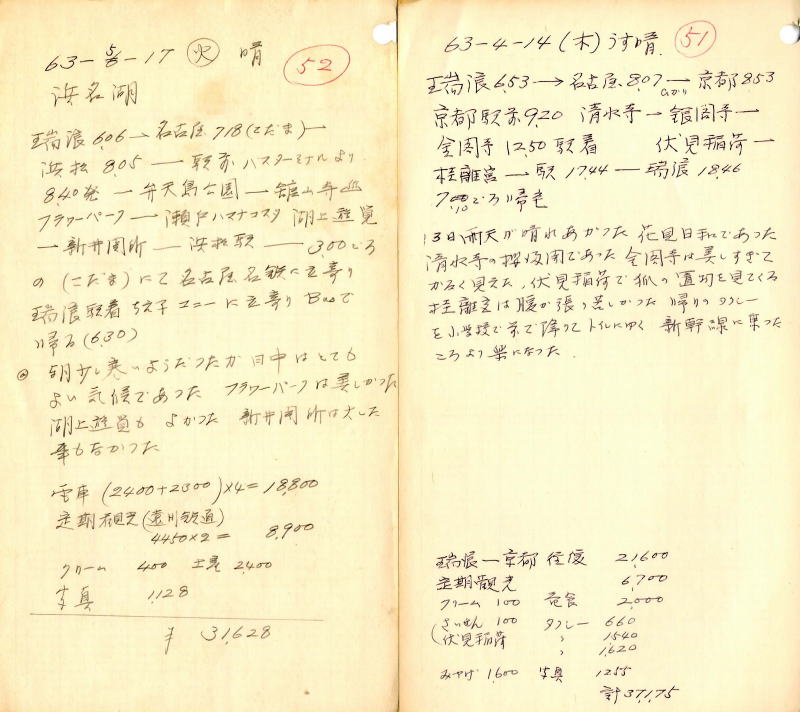 51
63-4-14 (木) うす晴
瑞浪 6.53 → 名古屋 8.07 → 京都 8.53
ひかり
京都駅前 9.20 清水寺 ― 銀閣寺 ―
金閣寺 12.50 駅着 伏見稲荷 ―
桂離宮 ― 駅 17.44 ― 瑞浪 18.46
ごろ帰宅
13日雨天が晴れあがった 花見日和であった
清水寺の桜満開であった 金閣寺は美しすぎて
かるく見えた、伏見稲荷で狐の置物を見てくる
桂離宮は腹が張り苦しかった 帰りのタクシー
を小学校で前で降りてトイレにゆく 新幹線に乗った
ころより楽になった.
瑞浪―京都 往復 21,600
定期観光 6,700
クリーム 100 昼食 2,000
さいせん 100 タクシー 660
(伏見稲荷 〃 1540
〃 1,620
みやげ 1,600 写真 1255
計 37,175
52
63-5-17 火 晴
浜名湖
瑞浪 6.06 → 名古屋 7.18 (こだま) →
浜松 8.05 ― 駅前バスターミナルより
8.40発 ― 弁天島公園 ― 舘山寺
フラワーパーク ― 瀬戸ハマナコスタ 湖上遊覧
― 新井関所 ― 浜松駅 ― 3.00ごろ
の (こだま) にて 名古屋 名鉄に立寄り
瑞浪駅着 ユニーに立寄り Busで
帰る (6.30)
朝少し寒いようだったが日中はとても
よい気候であった フラワーパークは美しかった
湖上遊覧も よかった 新井関所は大した
事もなかった
電車 (2400+2300)×4= 18,800
定期観光 (遠州鉄道)
4450×2= 8,900
クリーム 400 土産 2,400
写真 1,128
¥ 31,628